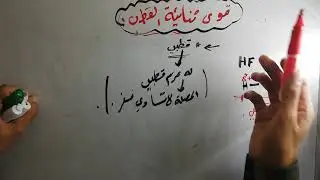 قوى ثنائية القطبـ :
* قطبين
له عزم قطبين
( المحصلة لا تساوي صفر )
HF
H—